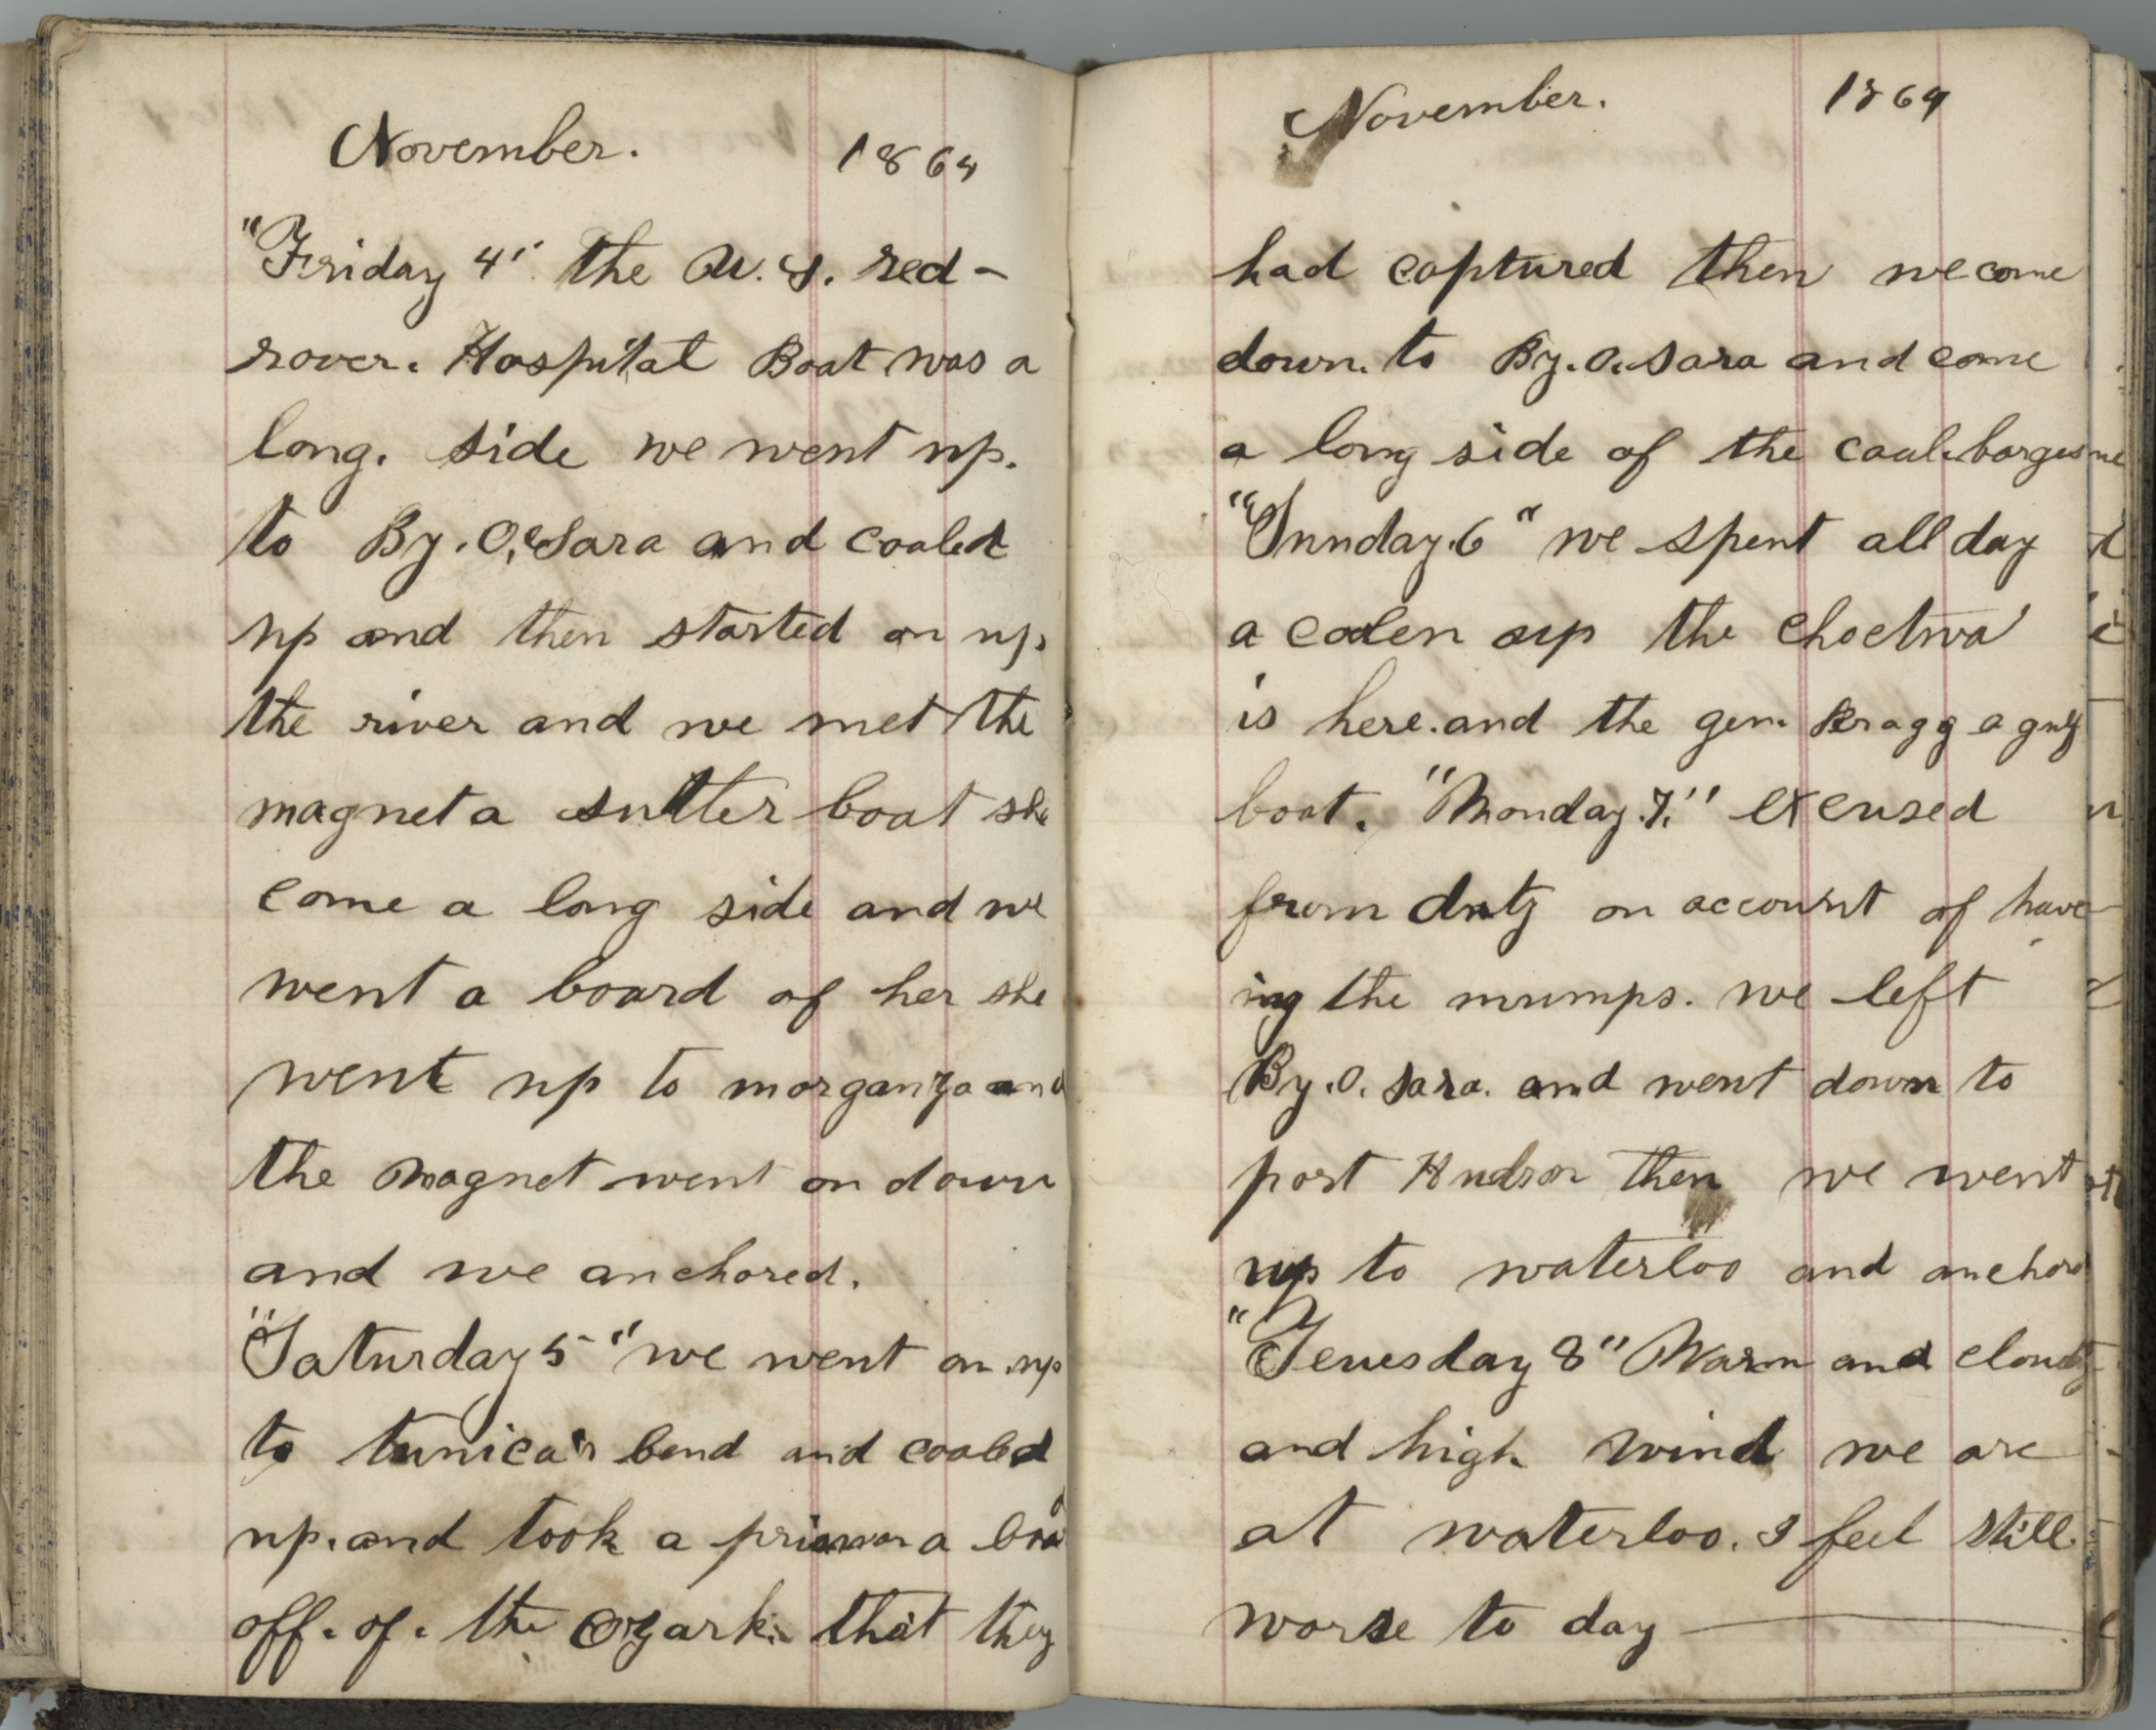 November. 1864
"Friday 4" the U. S. red-
rover. Hospital Boat was a
long. side we went up.
to By. O, Sara and coaled
up and then started on up
the river and we met the
magnet a sutler boat she
come a long side and we
went a board of her she
went up to morganza and
the Magnet went on down
and we anchored.
"Saturday 5" we went on up
to tunica's bend and coaled
up. and took a prisonor a board
off. of. the Ozark. that they
November. 1864
had captured then we come
down. to By. O. Sara and come
a long side of the coal. barges
"Sunday. 6" we spent all day
a coalen up the choctwa
is here. and the gen. Bragg a guf
boat. "Monday. 7." excused
from duty on account of have
ing the mumps. we left
By. O. Sara. and went down to
port Hudson then we went
up to waterloo and anchord
"Teuesday 8" Warm and cloudy
and high wind we are
at waterloo. I feel still
worse to day